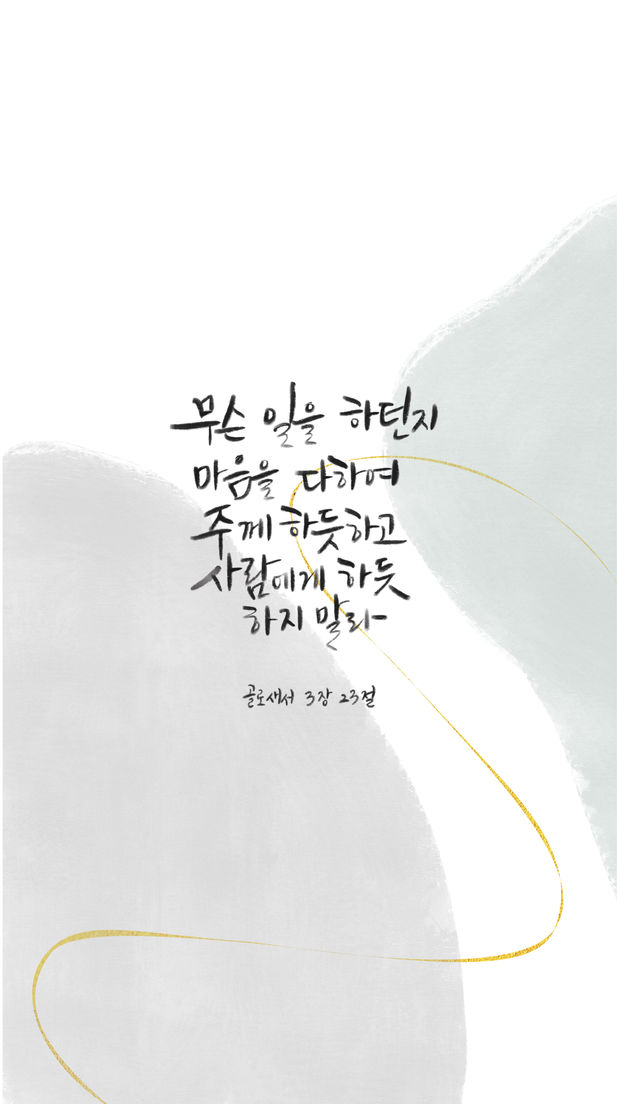 무슨 일을 하던지
마음을 다하여
주께 하듯하고
사람에게 하듯
하지 말라
골로새서 3장 23절